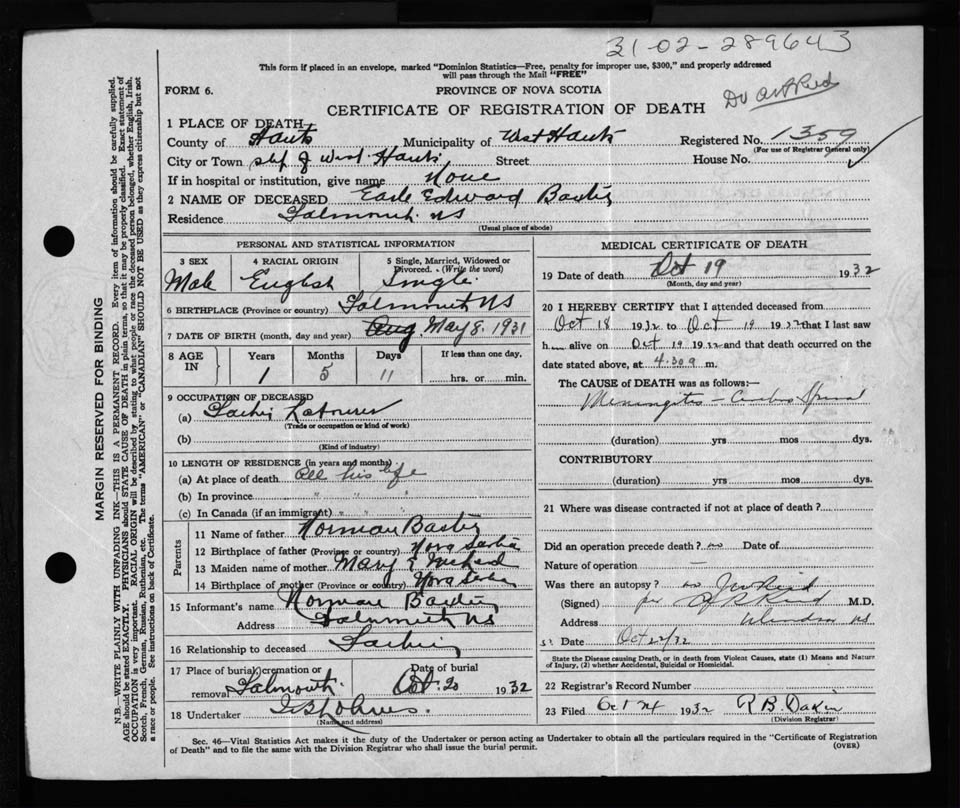 31-02-289643
This form if placed in an envelope, marked "Dominion Statistics—Free, penalty for improper use, $300," and properly addressed
will pass through the Mail "FREE"
FORM 6.
PROVINCE OF NOVA SCOTIA
CERTIFICATE OF REGISTRATION OF DEATH
1 PLACE OF DEATH
County of Hants Municipality of West Hants Registered No. 1359
(For use of Registrar General only)
City or Town of West Hants Street House No.
If in hospital or institution, give name None
2 NAME OF DECEASED Earle Edward Baxter
Residence Falmouth NS
(Usual place of abode)
PERSONAL AND STATISTICAL INFORMATION
3 SEX 4 RACIAL ORIGIN 5 Single, Married, Widowed or Divorced. (Write the word)
Male English Single
6 BIRTHPLACE (Province or country) Falmouth NS
7 DATE OF BIRTH (month, day and year) Aug May 8. 1931
8 AGE IN Years Months Days If less than one day.
1 5 11 hrs. or min.
9 OCCUPATION OF DECEASED
(a) Labourer
(Trade or occupation or kind of work)
(b)
(Kind of industry)
10 LENGTH OF RESIDENCE (in years and months)
(a) At place of death All his life
(b) In province " " "
(c) In Canada (if an immigrant) " " "
Parents
11 Name of father Norman Baxter
12 Birthplace of father (Province or country) Nova Scotia
13 Maiden name of mother Mary E
14 Birthplace of mother (Province or country) Nova Scotia
15 Informant's name Norman Baxter
Address Falmouth NS
16 Relationship to deceased Father
17 Place of burial, cremation or removal Falmouth. Date of burial Oct. 20 1932
18 Undertaker
(Name and address)
MEDICAL CERTIFICATE OF DEATH
19 Date of death Oct 19 1932
(Month, day and year)
20 I HEREBY CERTIFY that I attended deceased from
Oct 18 1932 to Oct 19 1932 that I last saw
h alive on Oct 19 1932 and that death occurred on the
date stated above, at 4.30 a m.
The CAUSE of DEATH was as follows:—
Meningitis - Cerebro Spinal
(duration) yrs mos dys.
CONTRIBUTORY
(duration) yrs mos dys.
21 Where was disease contracted if not at place of death?
Did an operation precede death? no Date of
Nature of operation —
Was there an autopsy? no
(Signed) for Reid M.D.
Address Windsor NS
Date Oct 22/32
State the Disease causing Death, or in death from Violent Causes, state (1) Means and Nature
of Injury, (2) whether Accidental, Suicidal or Homicidal.
22 Registrar's Record Number
23 Filed Oct 24 1932 R B. Dakin
(Division Registrar)
Sec. 46—Vital Statistics Act makes it the duty of the Undertaker or person acting as Undertaker to obtain all the particulars required in the "Certificate of Registration
of Death" and to file the same with the Division Registrar who shall issue the burial permit.
(OVER)
MARGIN RESERVED FOR BINDING
N.B.—WRITE PLAINLY WITH UNFADING INK—THIS IS A PERMANENT RECORD. Every item of information should be carefully supplied.
AGE should be stated EXACTLY. PHYSICIANS should STATE CAUSE OF DEATH in plain terms, so that it may be properly classified. Exact statement of
OCCUPATION is very important. RACIAL ORIGIN will be described by stating to what people or race the deceased person belonged, whether English, Irish,
Scotch, French, German, Russian, Ruthenian, etc. The terms "AMERICAN" or "CANADIAN" SHOULD NOT BE USED as they express citizenship but not
a race or people. See instructions on back of Certificate.